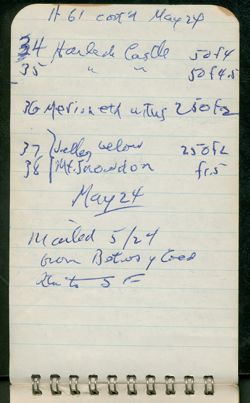 # 61 cont'd May 24
34 Harlech Castle 50 f4
35 " " 50 f4.5
36 Merioneth 250 f22
37 Valley below 250 f2
38 Mt. Snowdon f1.5
May 24
Mailed 5/24
from Betws y Coed
to S F